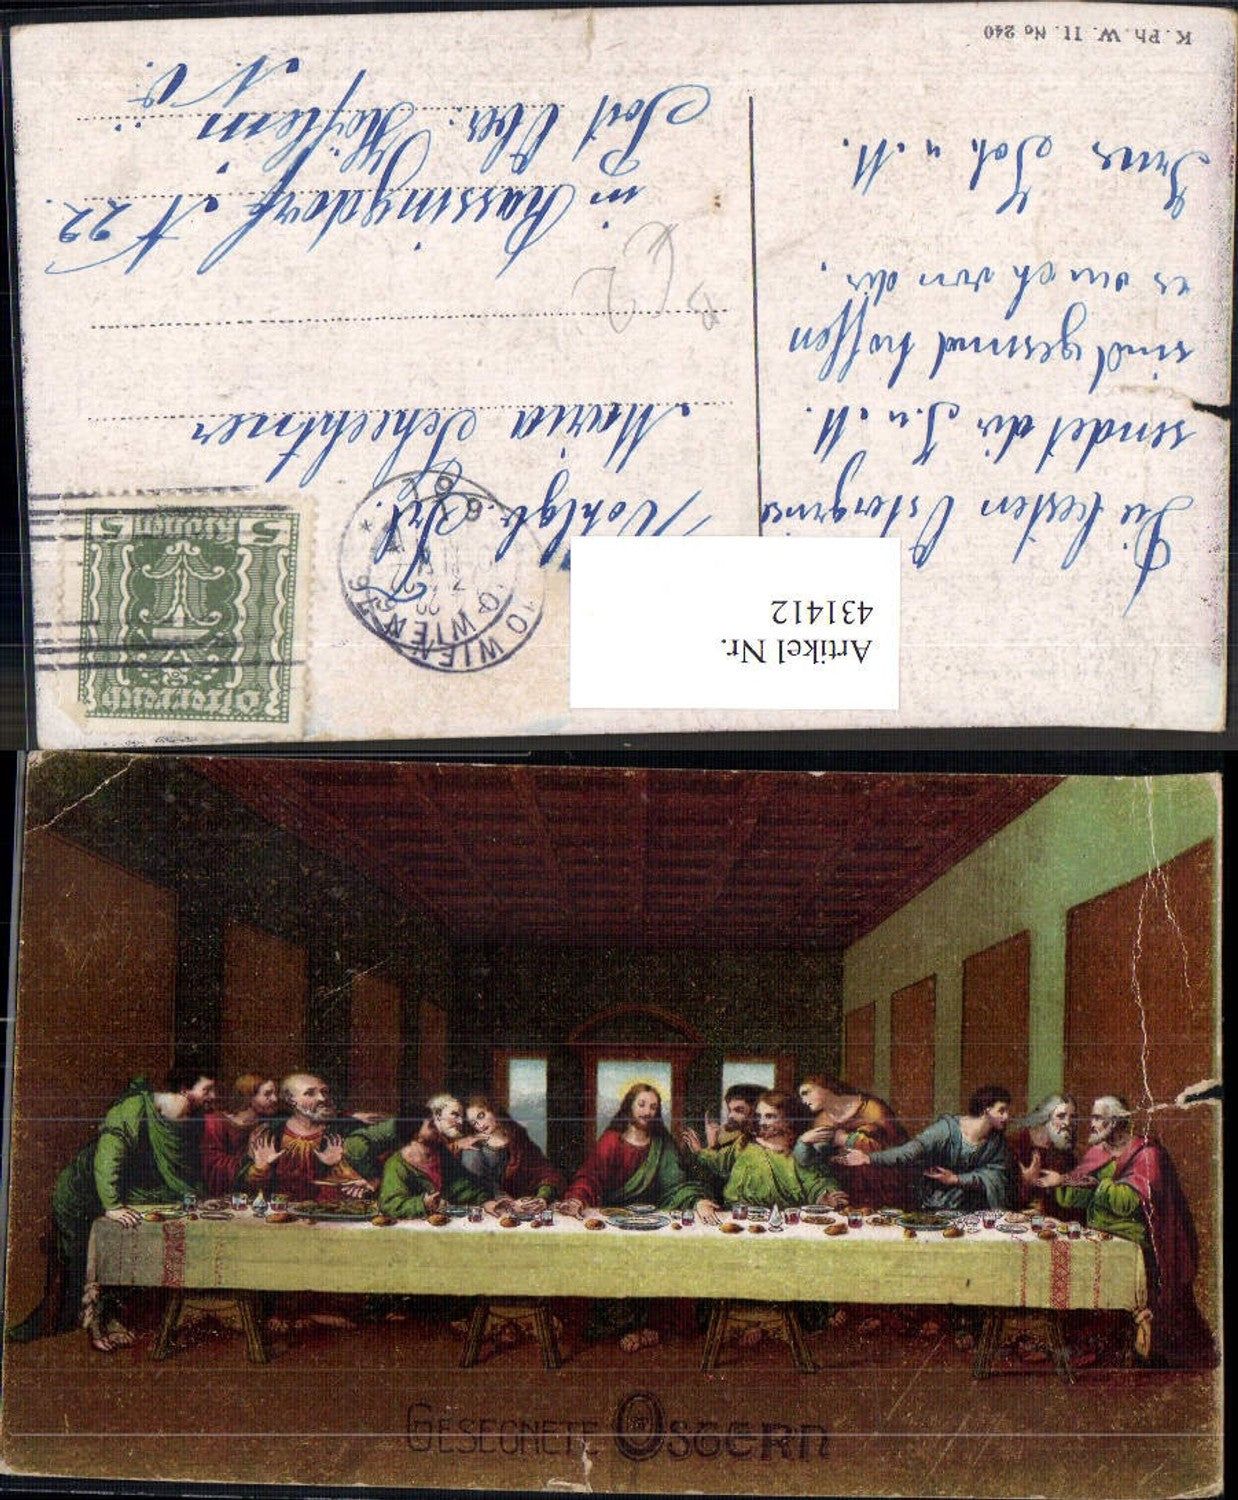 K. Ph. W. II. No 240
Die besten Ostergrüsse
sendet dir J. u. M.
sind gesund hoffen
es auch von dir.
Joh u. M.
Wohlgb. Frl.
Maria Schechtner
in Rassingdorf N 22.
Post Ober. Höflein
N. Ö.
5 5
Kronen
Österreich
WIEN
WIEN
Artikel Nr.
431412
GESEGNETE OSTERN